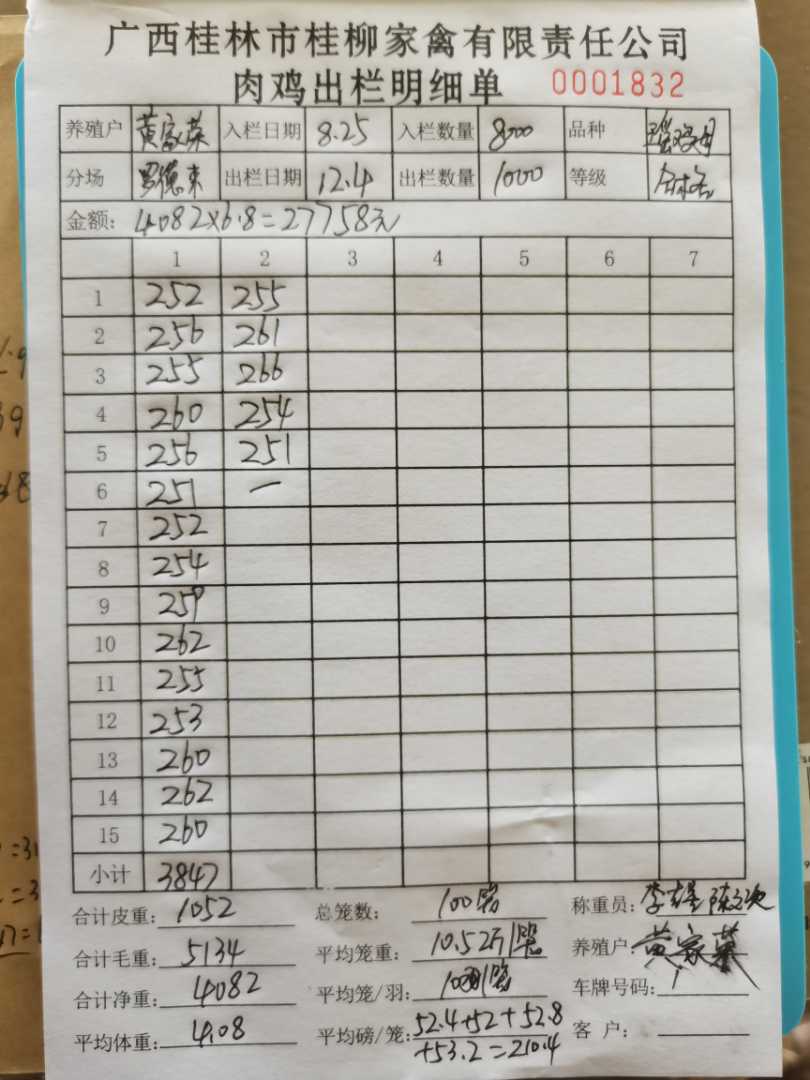 广西桂林市桂柳家禽有限责任公司
肉鸡出栏明细单 0001832
养殖户 黄家荣 入栏日期 8.25 入栏数量 8000 品种
分场 罗德来 出栏日期 12.4 出栏数量 1000 等级 合格
金额: 4082×6.8=27758元
1 2 3 4 5 6 7
1 252 255
2 256 261
3 255 266
4 260 254
5 256 251
6 251 —
7 252
8 254
9 259
10 262
11 255
12 253
13 260
14 262
15 260
小计 3847
合计皮重: 1052 总笼数: 100笼 称重员:
合计毛重: 5134 平均笼重: 10.52斤/笼 养殖户: 黄家荣
合计净重: 4082 平均笼/羽: 10羽/笼 车牌号码:
平均体重: 4.08 平均磅/笼: 52.4+52+52.8 客户:
+53.2=210.4